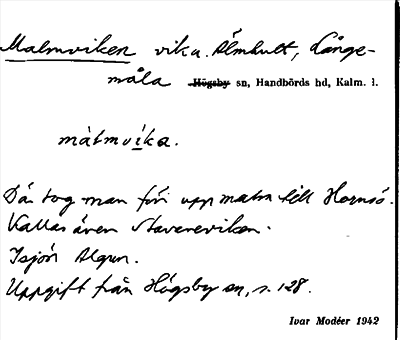 Malmviken vika. Älmhult, Långe-
måla Högsby sn, Handbörds hd, Kalm. l.
màlmvíka.
Där tog man förr upp malm till Hornsö.
Kallas även Stavereviken.
I sjön Algun.
Uppgift från Högsby sn, s. 128.
Ivar Modéer 1942